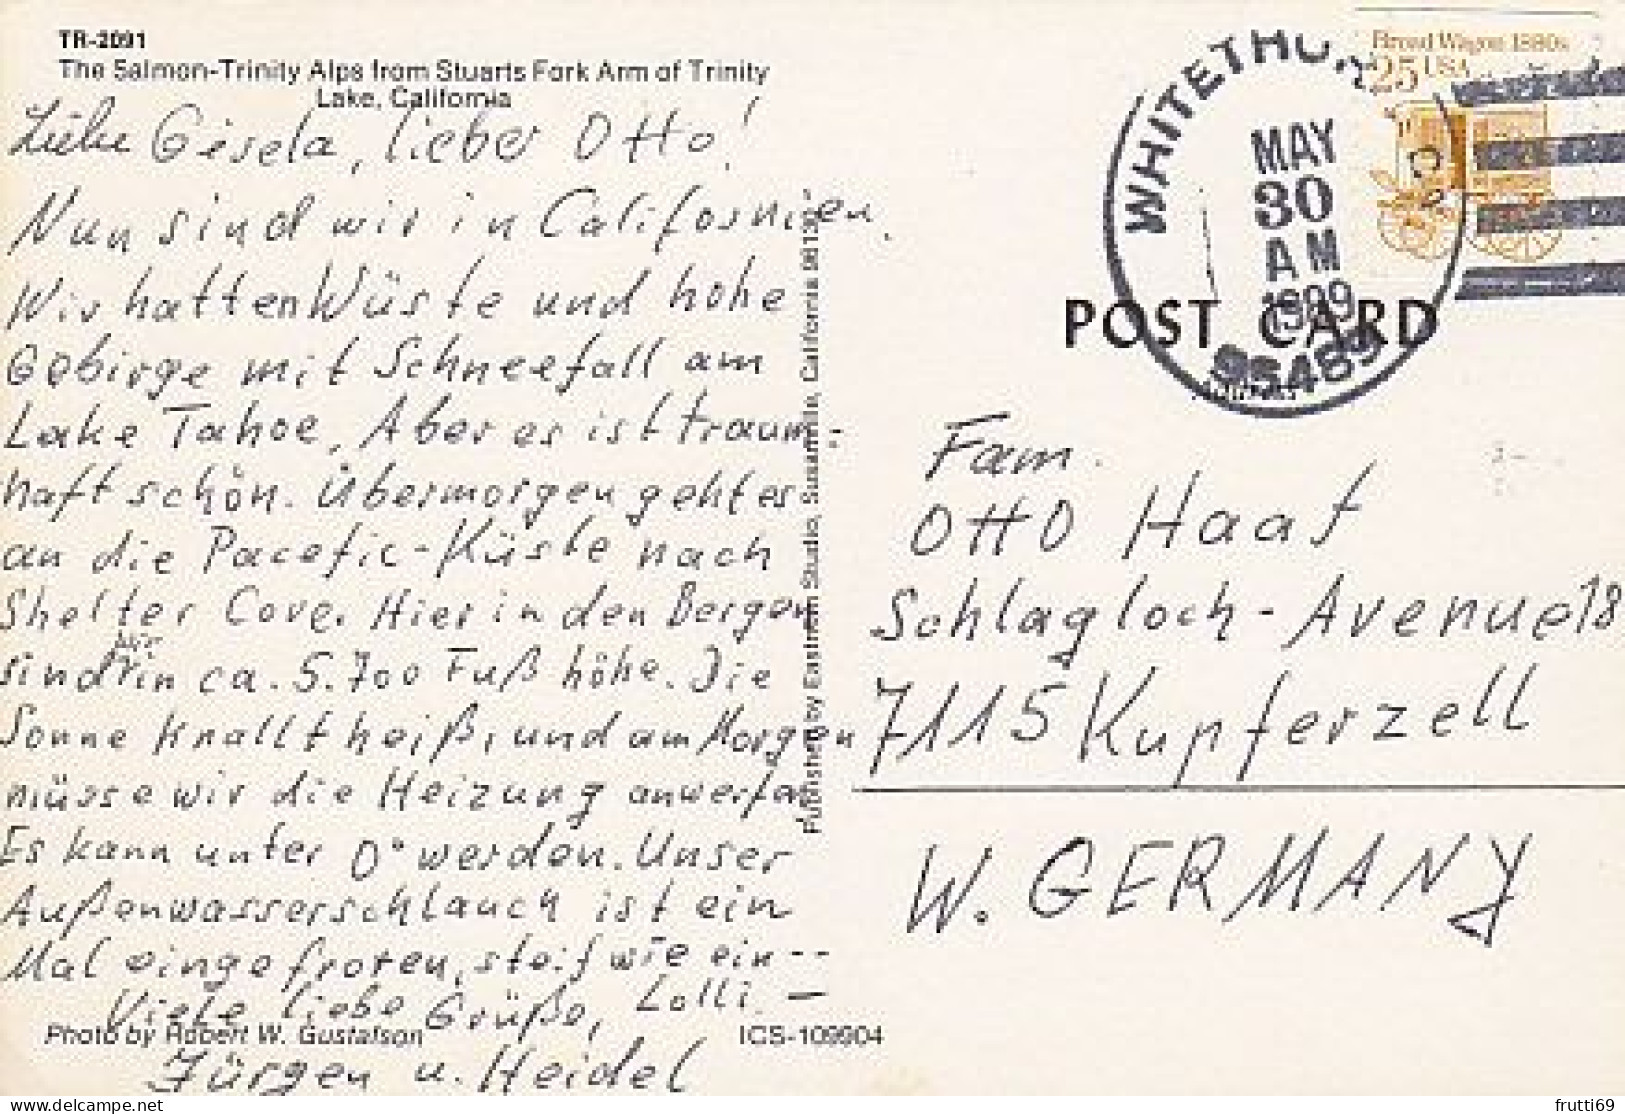 TR-2091
The Salmon-Trinity Alps from Stuarts Fork Arm of Trinity
Lake, California
Liebe Gisela, lieber Otto!
Nun sind wir in Californien.
Wir hatten Wüste und hohe
Gebirge mit Schneefall am
Lake Tahoe. Aber es ist traum-
haft schön. Übermorgen geht es
an die Pacefic-Küste nach
Shelter Cove. Hier in den Bergen
sind wir in ca. 5.700 Fuß höhe. Die
Sonne knallt heiß, und am Morgen
müsse wir die Heizung anwerfen
Es kann unter 0° werden. Unser
Außenwasserschlauch ist ein
Mal eingefroren, steif wie ein --
Viele liebe Grüße, Lolli. -
Jürgen u. Heidel
Photo by Robert W. Gustafson
ICS-109904
Published by Eastman Studio, Susanville, California 96130
POST CARD
WHITETHORN CA
MAY
30
AM
1989
95489
Bread Wagon 1880s
25 USA
Fam.
Otto Haaf
Schlagloch-Avenue 18
7115 Kupferzell
W. GERMANY
frutti69